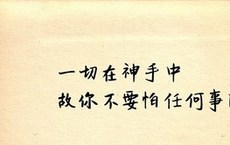 一切在神手中
故你不要怕任何事